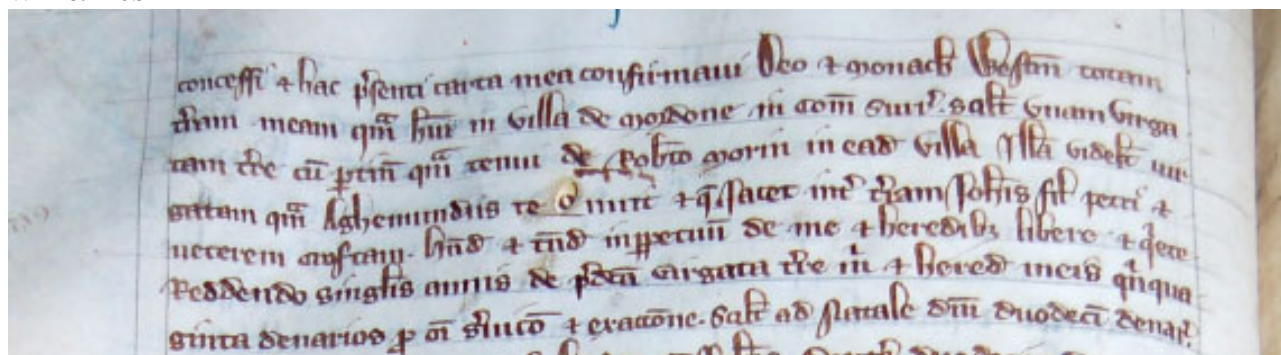 concessi & hac p͛senti carta mea confirmaui Deo & monach̛ Westm̄ totam
t͛ram meam qm̄ h̄ui in villa de mordone in com̄ Surr̛. scilt̛ vnam virga
tam t͛re cū ptin̄ qm̄ tenui de Rob̛to morin in ead̛ villa Illā videlt̛ uir
gatam qm̄ Aghemundus te nuit & q̄ Jacet int̛ t͛ram Joh̛is fil̛ petri &
ueterem h̄nd̛ & tn̄d̛ inppetuū de me & heredibȝ libere & q̛ete.
Reddendo singlis̛ annis de p͛dc̄a virgata t͛re m̛ & hered̛ meis q̛nqua
ginta denarios p om̄i s͛uic̄o & exacc̄one. Scilt̛ ad Natale dn̄i duodecī denar̛.